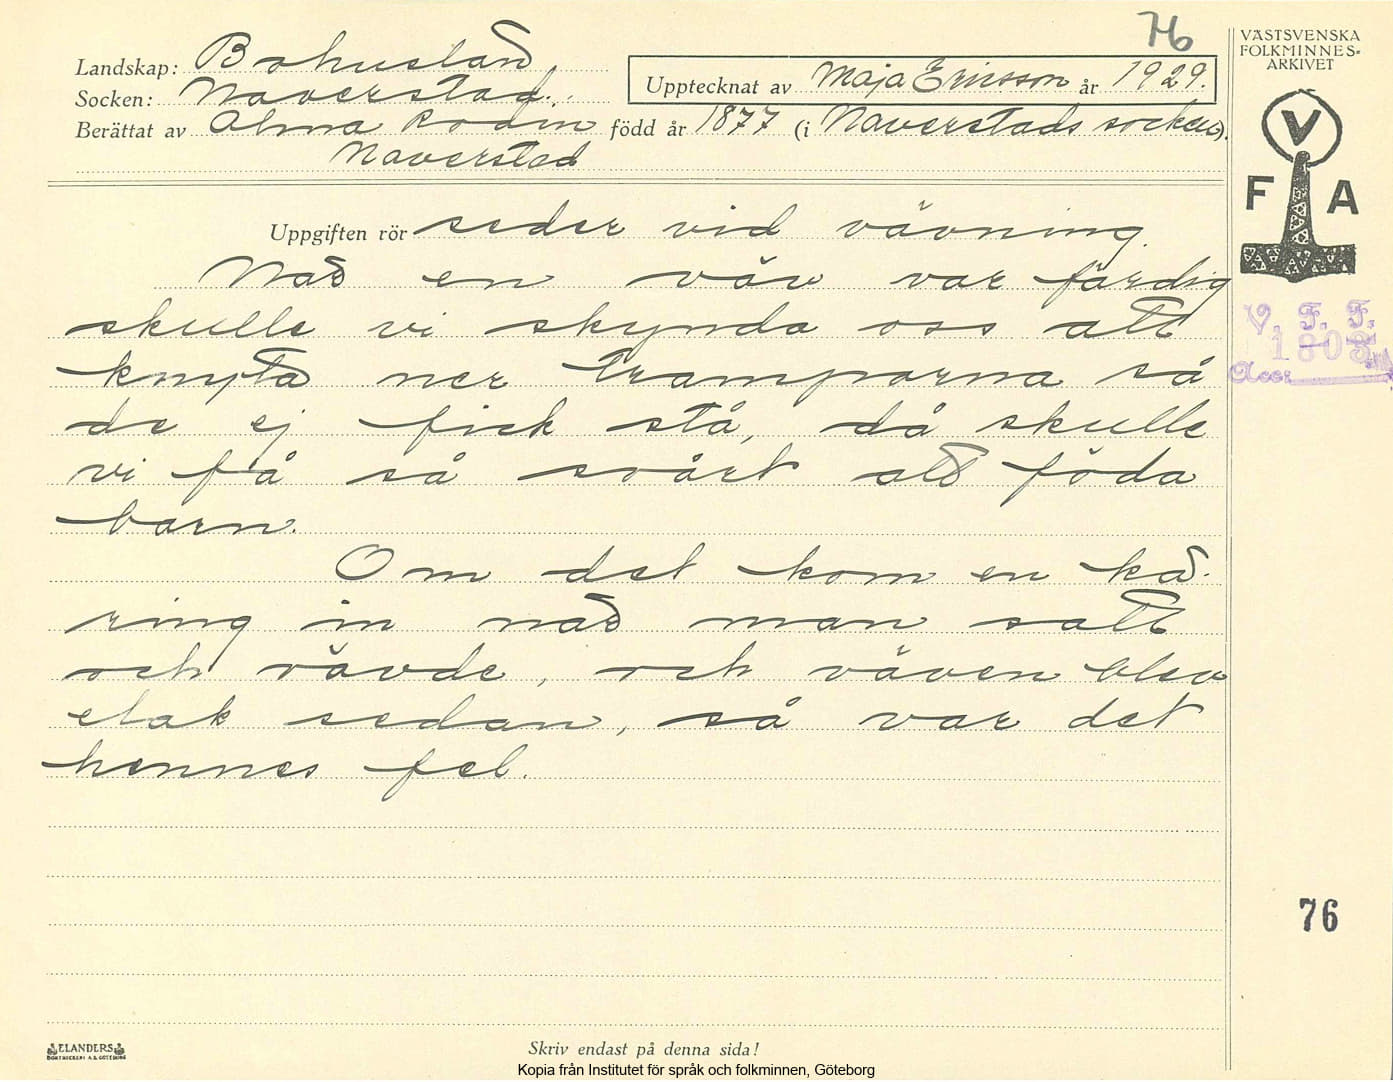 76
VÄSTSVENSKA
FOLKMINNES-
ARKIVET
Landskap: Bohuslän
Socken: Naverstad.
Upptecknat av Maja Ericsson år 1929.
Berättat av Alma Rodin född år 1877 (i Naverstads socken).
Naverstad
V
F A
Uppgiften rör seder vid vävning.
När en väv var färdig
skulle vi skynda oss att
knyta ner tramporna så
de ej fick stå, då skulle
vi få så svårt att föda
barn.
Om det kom en kä-
ring in när man satt
och vävde, och väven blev
elak sedan, så var det
hennes fel.
V. F. F.
1803
Acc:
76
ELANDERS
BOKTRYCKERI A.B. GÖTEBORG
Skriv endast på denna sida!
Kopia från Institutet för språk och folkminnen, Göteborg